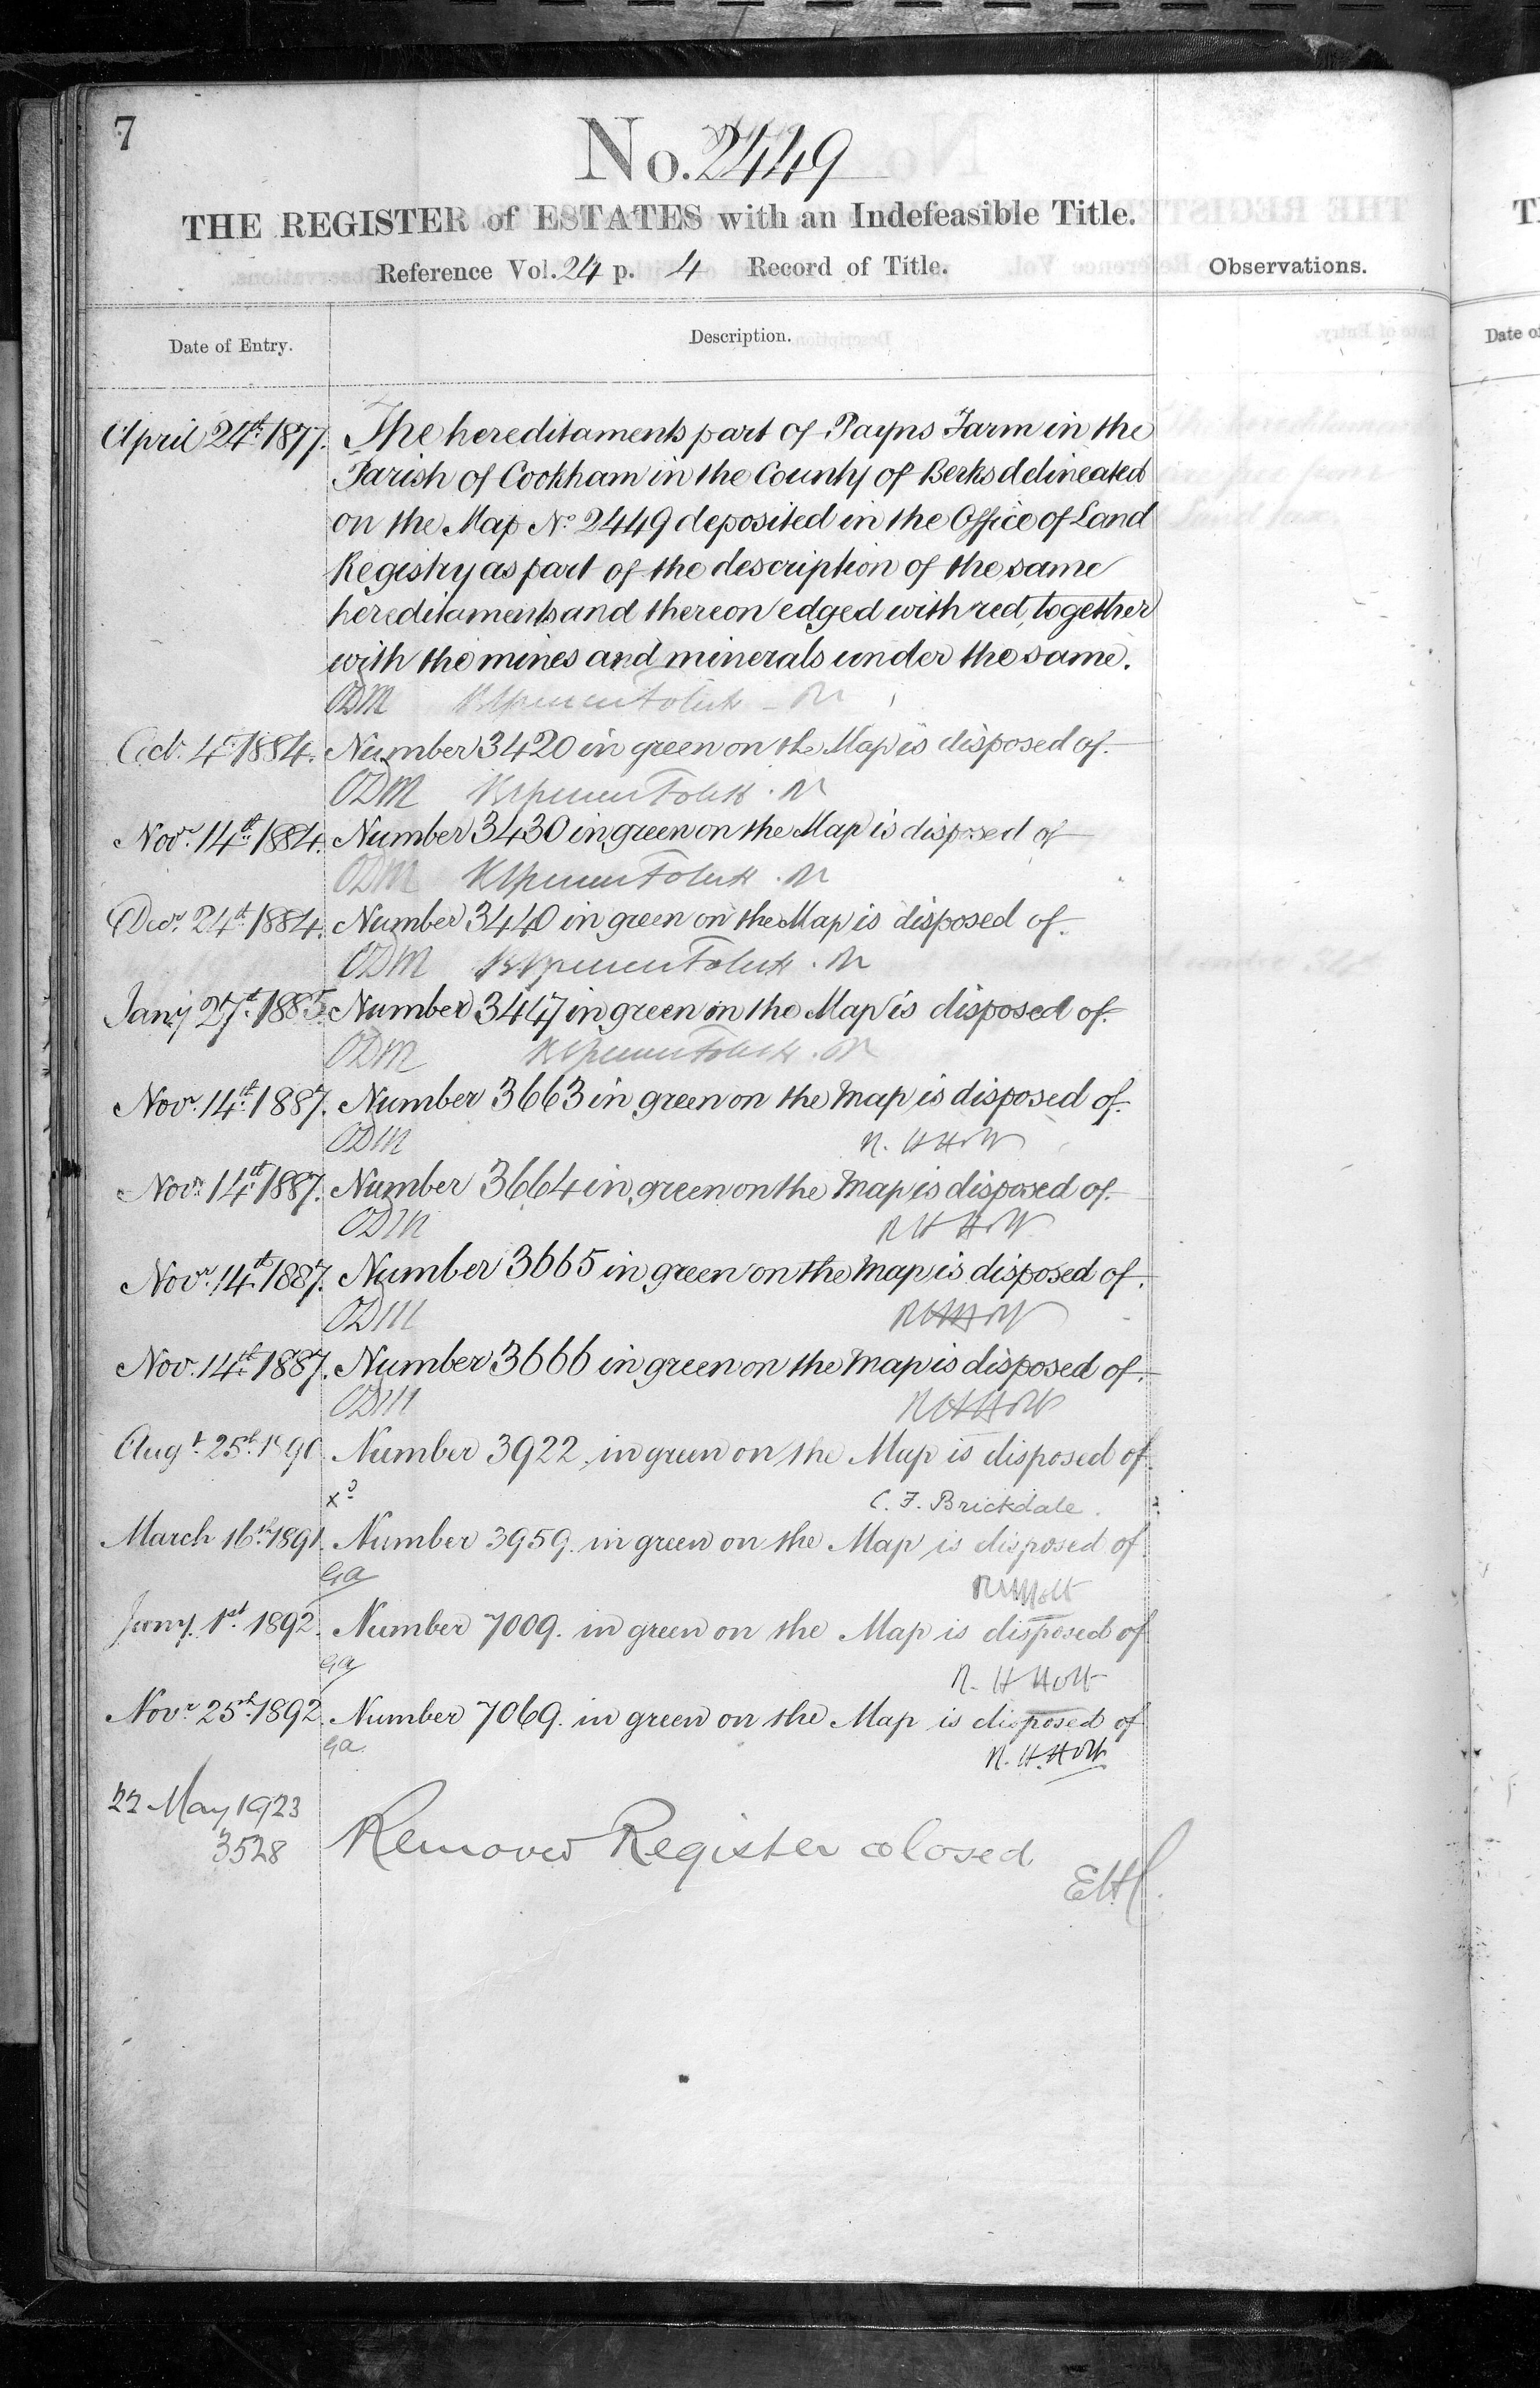 7
No. 2449
THE REGISTER of ESTATES with an Indefeasible Title.
Reference Vol. 24 p. 4 Record of Title.
Observations.
Date of Entry.
Description.
April 24th 1877. The hereditaments part of Payns Farm in the
Parish of Cookham in the County of Berks delineated
on the Map No. 2449 deposited in the Office of Land
Registry as part of the description of the same
hereditaments and thereon edged with red, together
with the mines and minerals under the same.
ODM
Oct. 4th 1884. Number 3420 in green on the Map is disposed of.
ODM
Novr. 14th 1884. Number 3430 in green on the Map is disposed of
ODM
Decr. 24th 1884. Number 3440 in green on the Map is disposed of.
ODM
Jany 27th 1885. Number 3447 in green on the Map is disposed of.
ODM
Novr. 14th 1887. Number 3663 in green on the Map is disposed of.
ODM R. H Holt
Novr. 14th 1887. Number 3664 in green on the Map is disposed of.
ODM R H Holt
Novr. 14th 1887. Number 3665 in green on the Map is disposed of.
ODM R H Holt
Nov. 14th 1887. Number 3666 in green on the Map is disposed of.
ODM R H Holt
Augt. 25th 1890. Number 3922 in green on the Map is disposed of.
C. F. Brickdale.
March 16th 1891. Number 3959. in green on the Map is disposed of.
GA R H Holt
Jany. 1st 1892. Number 7009. in green on the Map is disposed of.
GA R. H Holt
Novr. 25th 1892. Number 7069. in green on the Map is disposed of
GA. R. H. Holt
22 May 1923
3528 Removed Register closed
Date of